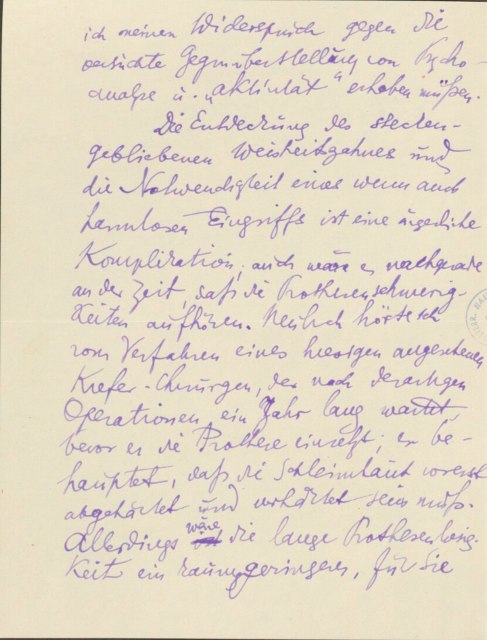 ich meinen Widerspruch gegen die
versuchte Gegenüberstellung von Psycho-
analyse u. „Aktivität“ erheben müssen.
Die Entdeckung des stecken-
gebliebenen Weisheitszahnes und
die Notwendigkeit eines wenn auch
harmlosen Eingriffs ist eine ärgerliche
Komplikation; auch wäre es nachgerade
an der Zeit, daß die Prothesenschwierig-
keiten aufhören. Neulich hörte ich
vom Verfahren eines hiesigen angesehenen
Kiefer-Chirurgen, der nach derartigen
Operationen, ein Jahr lang wartet,
bevor er die Prothese einsetzt; er be-
hauptet, daß die Schleimhaut vorerst
abgehärtet und verhärtet sein muß.
Allerdings wäre die lange Prothesenlosig-
keit ein kaum geringeres, für Sie